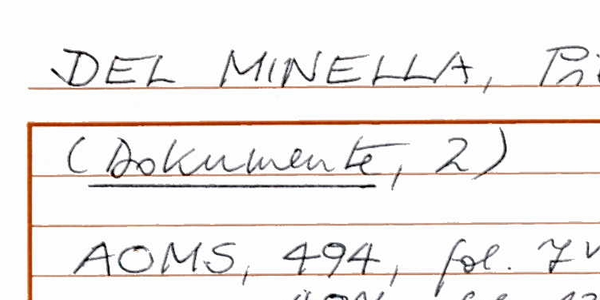 DEL MINELLA,
(Dokumente, 2)
AOMS, 494, fol. 7v